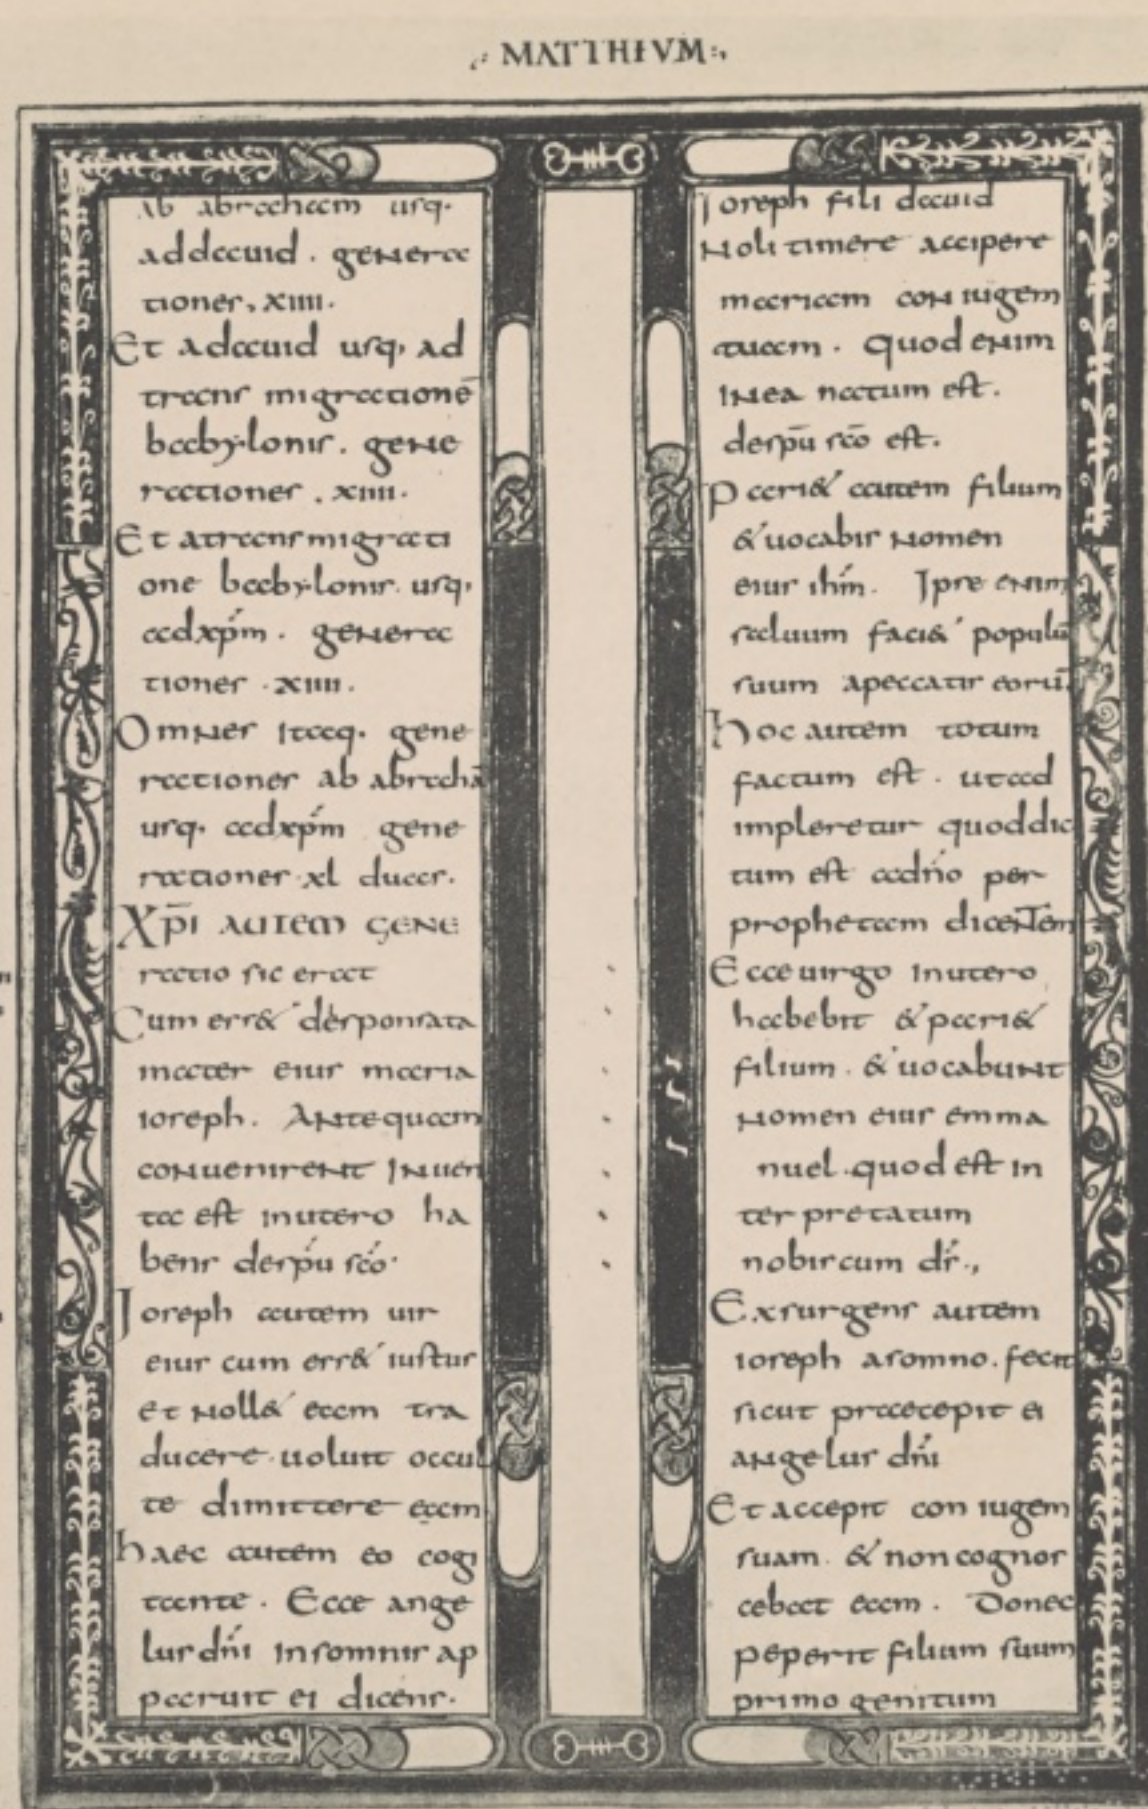 .: MATTHEVM :.
ab abraham usq.
addauid. genera
tiones, xiiii.
Et adauid usq, ad
trans migrationē
babylonis. gene
rationes. xiiii.
Et atransmigrati
one babylonis. usq,
adxp̄m. genera
tiones. xiiii.
Omnes itaq. gene
rationes ab abrahā
usq. adxp̄m gene
rationes. xl duas.
Xp̄i autem gene
ratio sic erat
Cum ess& desponsata
mater eius maria
ioseph. Antequam
conuenirent Inuen
ta est inutero ha
bens desp̄u sc̄o.
Ioseph autem uir
eius cum ess& iustus
et noll& eam tra
ducere. uoluit occul
te dimittere eam
haec autem eo cogi
tante. Ecce ange
lus dn̄i insomnis ap
paruit ei dicens.
Ioseph fili dauid
Noli timere accipere
mariam coniugem
tuam. Quod enim
inea natum est.
desp̄u sc̄o est.
Pari& autem filium
& uocabis nomen
eius ih̄m. Ipse enim
saluum faci& populū
suum apeccatis eorū.
hoc autem totum
factum est. utad
impleretur quoddic
tum est adn̄o per
prophetam dicentem
Ecce uirgo inutero
habebit & pari&
filium. & uocabunt
nomen eius emma
nuel. quod est in
ter pretatum
nobiscum ds̄.,
Exsurgens autem
ioseph asomno. fecit
sicut praecepit ei
angelus dn̄i
Et accepit con iugem
suam. & non cognos
cebat eam. Donec
peperit filium suum
primo genitum